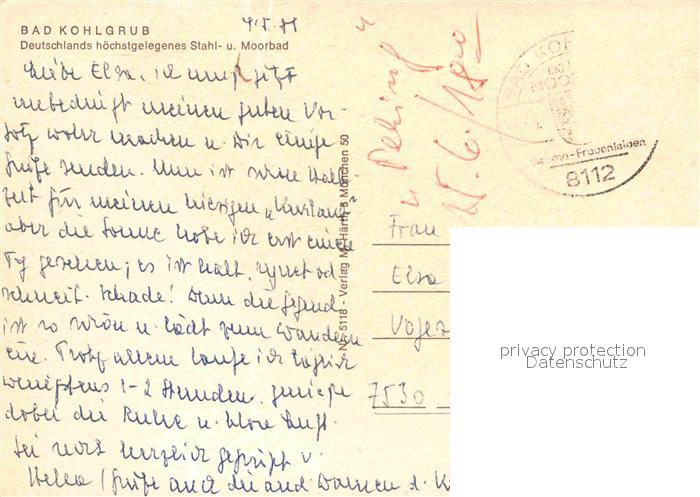 4.5.81
BAD KOHLGRUB
Deutschlands höchstgelegenes Stahl- u. Moorbad
Liebe Elsa, ich muß jetzt
unbedingt meinen guten Vor-
satz wahr machen u. Dir einige
Grüße senden. Nun ist schon Halb-
zeit für meinen hiesigen "Kurlaub"
aber die Sonne habe ich erst einen
Tg gesehen; es ist kalt, regnet od
schneit. Schade! Denn die Gegend
ist so schön u. lädt zum Wandern
ein. Trotz allem laufe ich täglich
wenigstens 1-2 Stunden, genieße
dabei die Ruhe u. klare Luft.
Sei recht herzlich gegrüßt v.
Helga (Grüße auch die and Damen d. K
Nr. 5118 - Verlag M. Härtl 8 München 50
"Peking"
25.6./1800
BAD KOH
MOO
Rheuma-Frauenleiden
8112
Frau
Elsa
Vogez
7530
privacy protection
Datenschutz